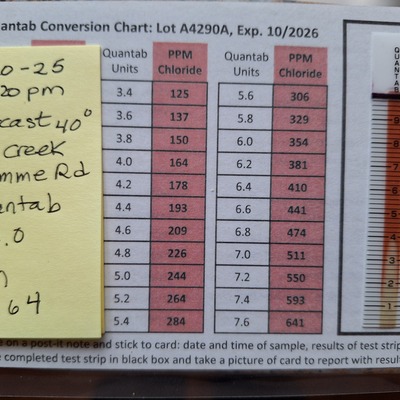 uantab Conversion Chart: Lot A4290A, Exp. 10/2026
0-25
20 pm
cast 40°
Creek
mme Rd
antab
.0
64
Quantab Units PPM Chloride Quantab Units PPM Chloride
3.4 125 5.6 306
3.6 137 5.8 329
3.8 150 6.0 354
4.0 164 6.2 381
4.2 178 6.4 410
4.4 193 6.6 441
4.6 209 6.8 474
4.8 226 7.0 511
5.0 244 7.2 550
5.2 264 7.4 593
5.4 284 7.6 641
QUANTAB
9
8
7
6
5
4
3
2
1
on a post-it note and stick to card: date and time of sample, results of test strip
e completed test strip in black box and take a picture of card to report with resul